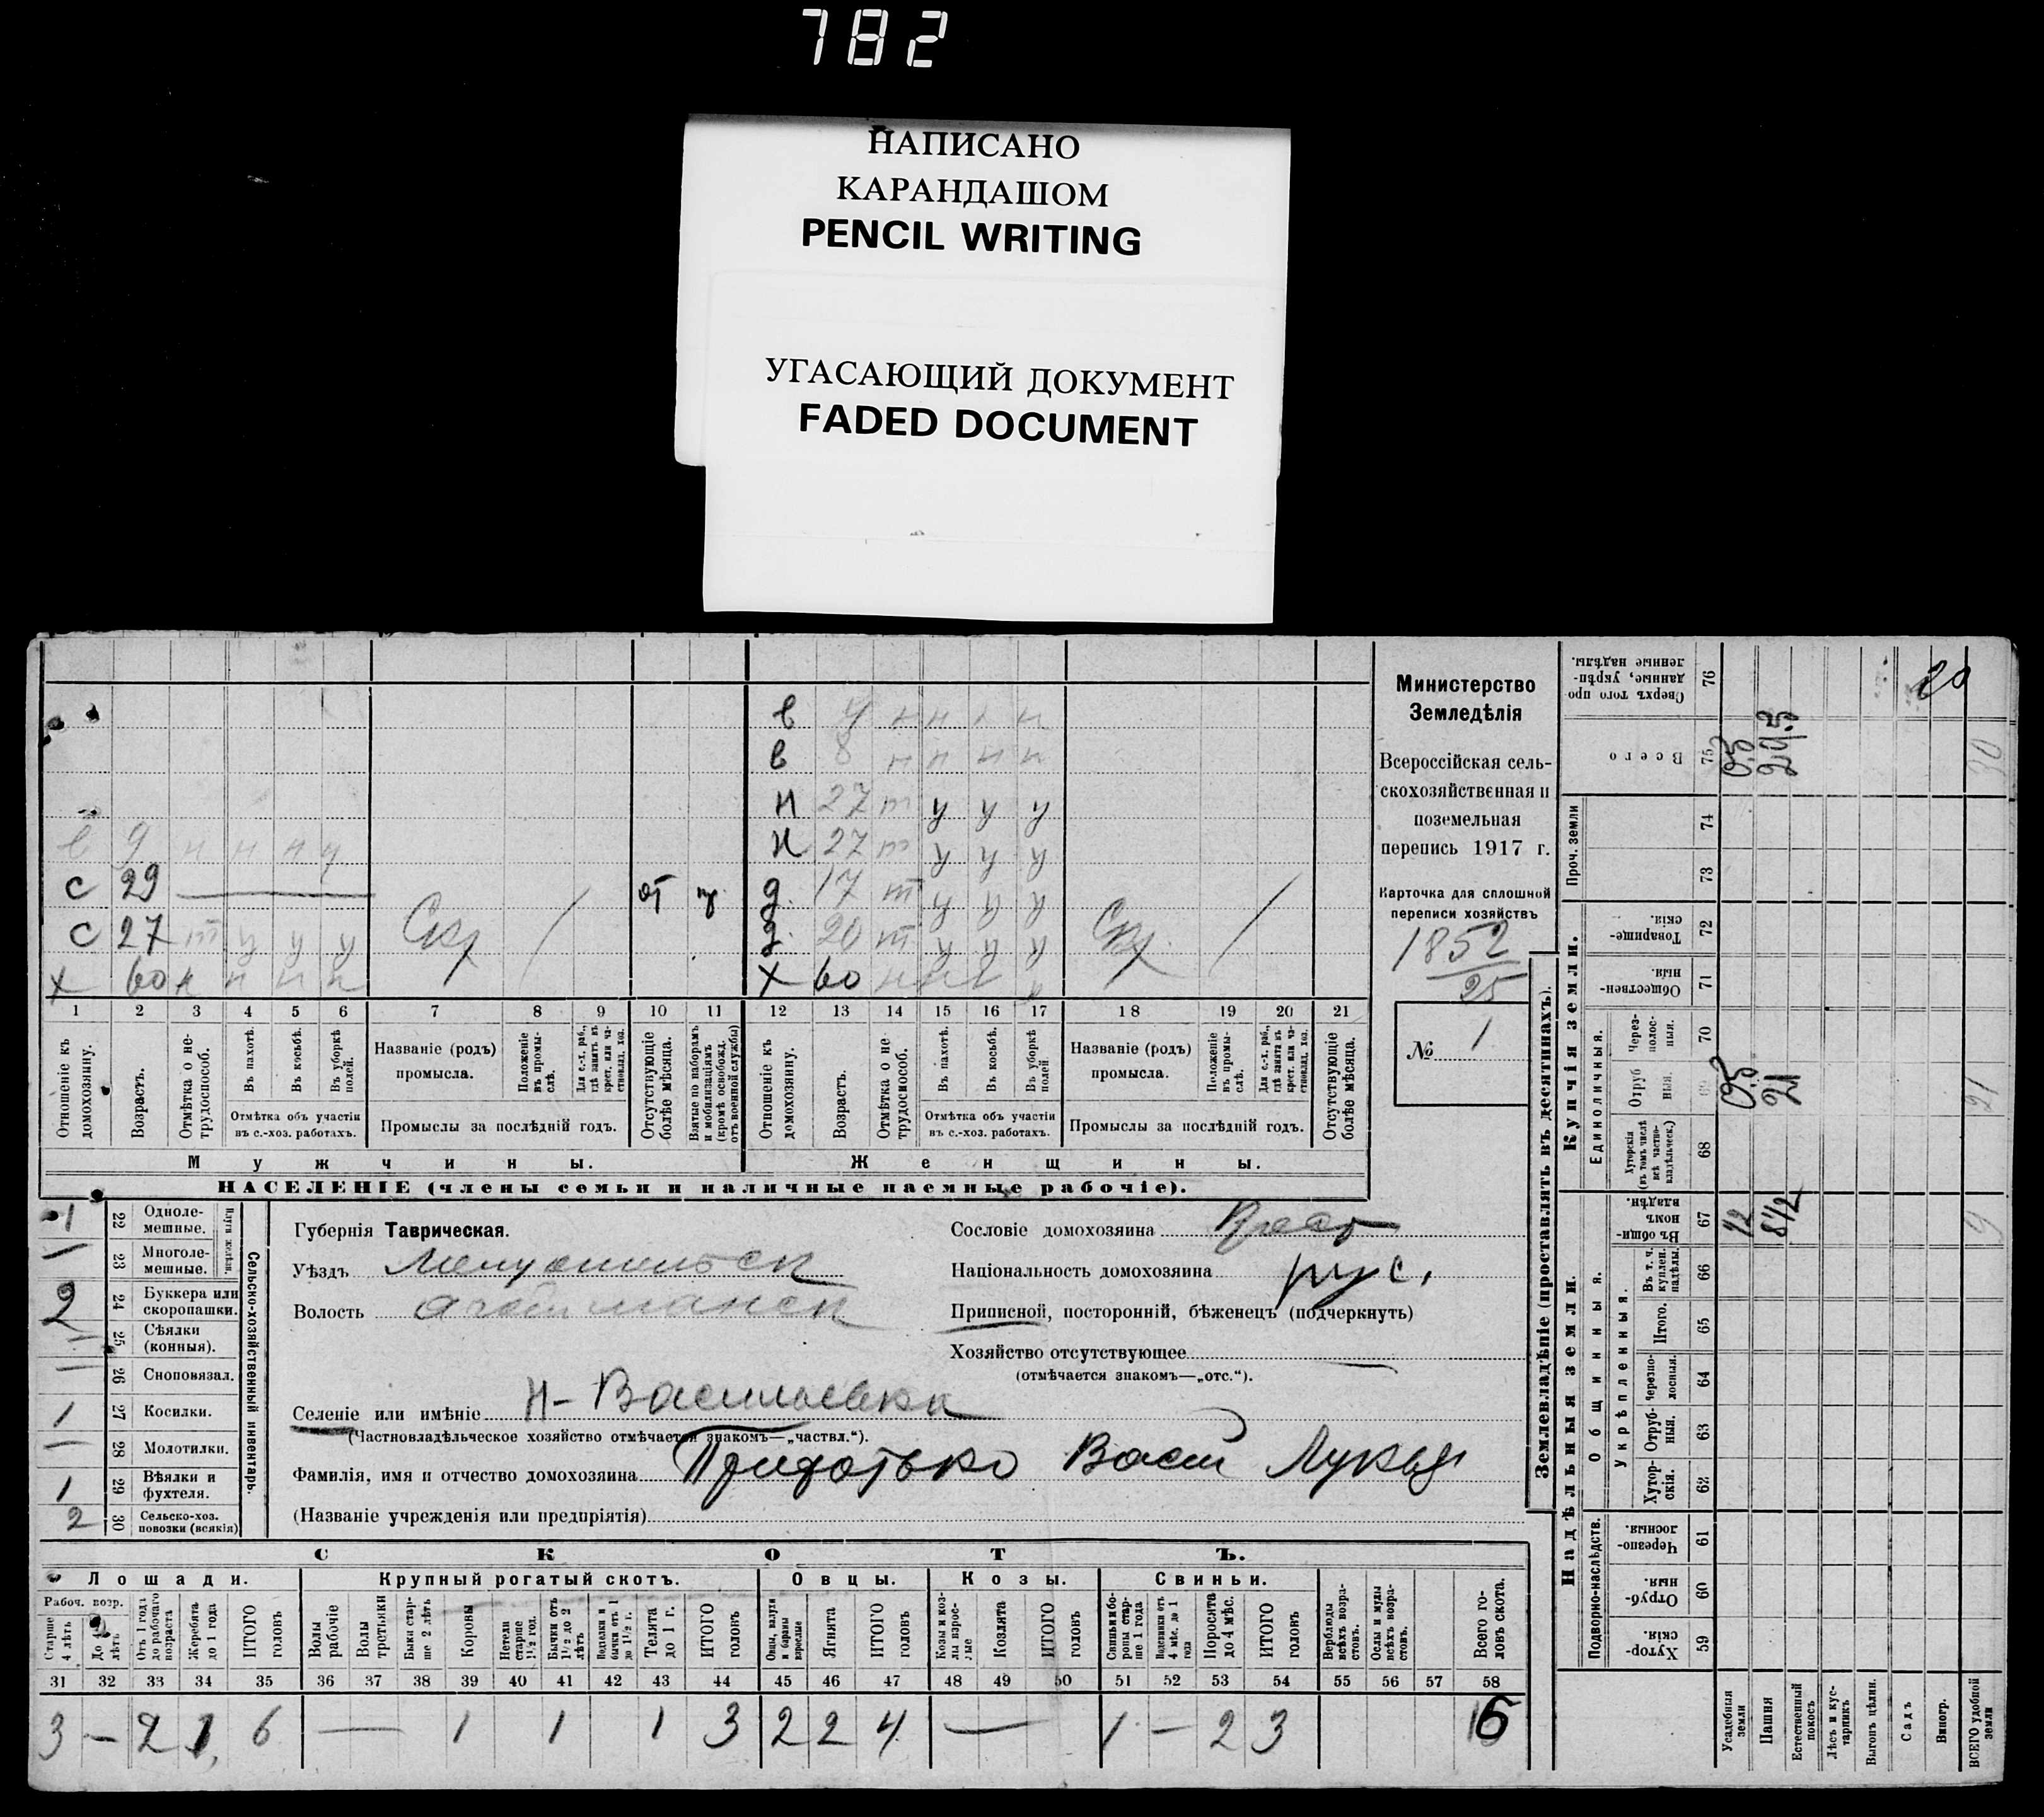 782
НАПИСАНО
КАРАНДАШОМ
PENCIL WRITING
УГАСАЮЩИЙ ДОКУМЕНТ
FADED DOCUMENT
в 9 н н н у
с 29 от пр
с 27 т у у у Скр /
х 60 н н н н
в 4 н н н н
в 8 н н н н
н 27 т у у у
н 27 т у у у
д 17 т у у у
д 20 т у у у Скр /
х 60 н н
1 2 3 4 5 6 7 8 9 10 11 12 13 14 15 16 17 18 19 20 21
Отношеніе къ домохозяину.
Возрастъ.
Отмѣтка о нетрудоспособ.
Въ пахотѣ.
Въ косьбѣ.
Въ уборкѣ полей.
Отмѣтка объ участіи въ с.-хоз. работахъ.
Названіе (родъ) промысла.
Положеніе въ промыслѣ.
Для с.-х. раб., гдѣ занятъ въ крест. или частновлад. хоз.
Промыслы за послѣдній годъ.
Отсутствующіе болѣе мѣсяца.
Взятые по наборамъ и мобилизаціямъ (кромѣ освобожд. отъ военной службы)
Отношеніе къ домохозяину.
Возрастъ.
Отмѣтка о нетрудоспособ.
Въ пахотѣ.
Въ косьбѣ.
Въ уборкѣ полей.
Отмѣтка объ участіи въ с.-хоз. работахъ.
Названіе (родъ) промысла.
Положеніе въ промыслѣ.
Для с.-х. раб., гдѣ занятъ въ крест. или частновлад. хоз.
Промыслы за послѣдній годъ.
Отсутствующіе болѣе мѣсяца.
Мужчины. Женщины.
НАСЕЛЕНІЕ (члены семьи и наличные наемные рабочіе).
Министерство
Земледѣлія
Всероссійская сель-
скохозяйственная и
поземельная
перепись 1917 г.
Карточка для сплошной
переписи хозяйствъ
1852
25
№ 1
1 22 Одноле-мешные.
— 23 Многоле-мешные.
Плуги желѣзн.
2 24 Буккера или скоропашки.
— 25 Сѣялки (конныя).
— 26 Сноповязал.
1 27 Косилки.
— 28 Молотилки.
1 29 Вѣялки и фухтеля.
2 30 Сельско-хоз. повозки (всякія)
Сельско-хозяйственный инвентарь.
Губернія Таврическая.
Сословіе домохозяина Крест
Уѣздъ Мелитопольск
Національность домохозяина рус.
Волость
Приписной, посторонній, бѣженецъ (подчеркнуть)
Хозяйство отсутствующее
(отмѣчается знакомъ—„отс.“).
Селеніе или имѣніе Н-Васильевка
(Частновладѣльческое хозяйство отмѣчается знакомъ—„частвл.“).
Фамилія, имя и отчество домохозяина Придатько Васил Лукья
(Названіе учрежденія или предпріятія)
СКОТЪ.
Лошади. Крупный рогатый скотъ. Овцы. Козы. Свиньи.
Рабоч. возр.
Старше 4 лѣтъ
До 4 лѣтъ
Отъ 1 года до рабочаго возраста
Жеребята до 1 года
ИТОГО головъ
Волы рабочіе
Волы третьяки
Быки старше 2 лѣтъ
Коровы
Нетели старше 1½ год.
Бычки отъ 1½ до 2 лѣтъ
Подтелки и бычки отъ 1 до 1½ г.
Телята до 1 г.
ИТОГО головъ
Овцы, валухи и бараны взрослые
Ягнята
ИТОГО головъ
Козы и козлы взрослые
Козлята
ИТОГО головъ
Свиньи и боровы старше 1 года
Подсвинки отъ 4 мѣс. до 1 года
Поросята до 4 мѣс.
ИТОГО головъ
Верблюды всѣхъ возрастовъ.
Ослы и мулы всѣхъ возрастовъ.
Всего головъ скота.
31 32 33 34 35 36 37 38 39 40 41 42 43 44 45 46 47 48 49 50 51 52 53 54 55 56 57 58
3 — 2 1 6 — 1 1 1 3 2 2 4 — 1 — 2 3 16
Землевладѣніе (проставлять въ десятинахъ).
Надѣльныя земли.
Купчія земли.
Проч. земли
Подворно-наслѣдств.
Общинныя.
Укрѣпленныя.
Единоличныя.
Хуторскія. 59
Отрубныя. 60
Черезполосныя. 61
Хуторскія. 62
Отрубныя. 63
Черезполосныя. 64
Итого. 65
Въ т. ч. куплен. надѣлы. 66
Въ общинномъ владѣн. 67
Хуторскія (въ томъ числѣ всѣ частновладѣльческ.) 68
Отрубныя. 69
Черезполосныя. 70
Общественныя. 71
Товарищескія. 72
73
74
Всего 75
Сверхъ того проданные, укрѣпленные надѣлы. 76
Усадебныя земли ½ 0,5
Пашня 8½ 21 29,5
Естественный покосъ
Лѣсъ и кустарникъ
Выгонъ цѣлин.
Садъ
Виногр.
ВСЕГО удобной земли 9 21 30
20